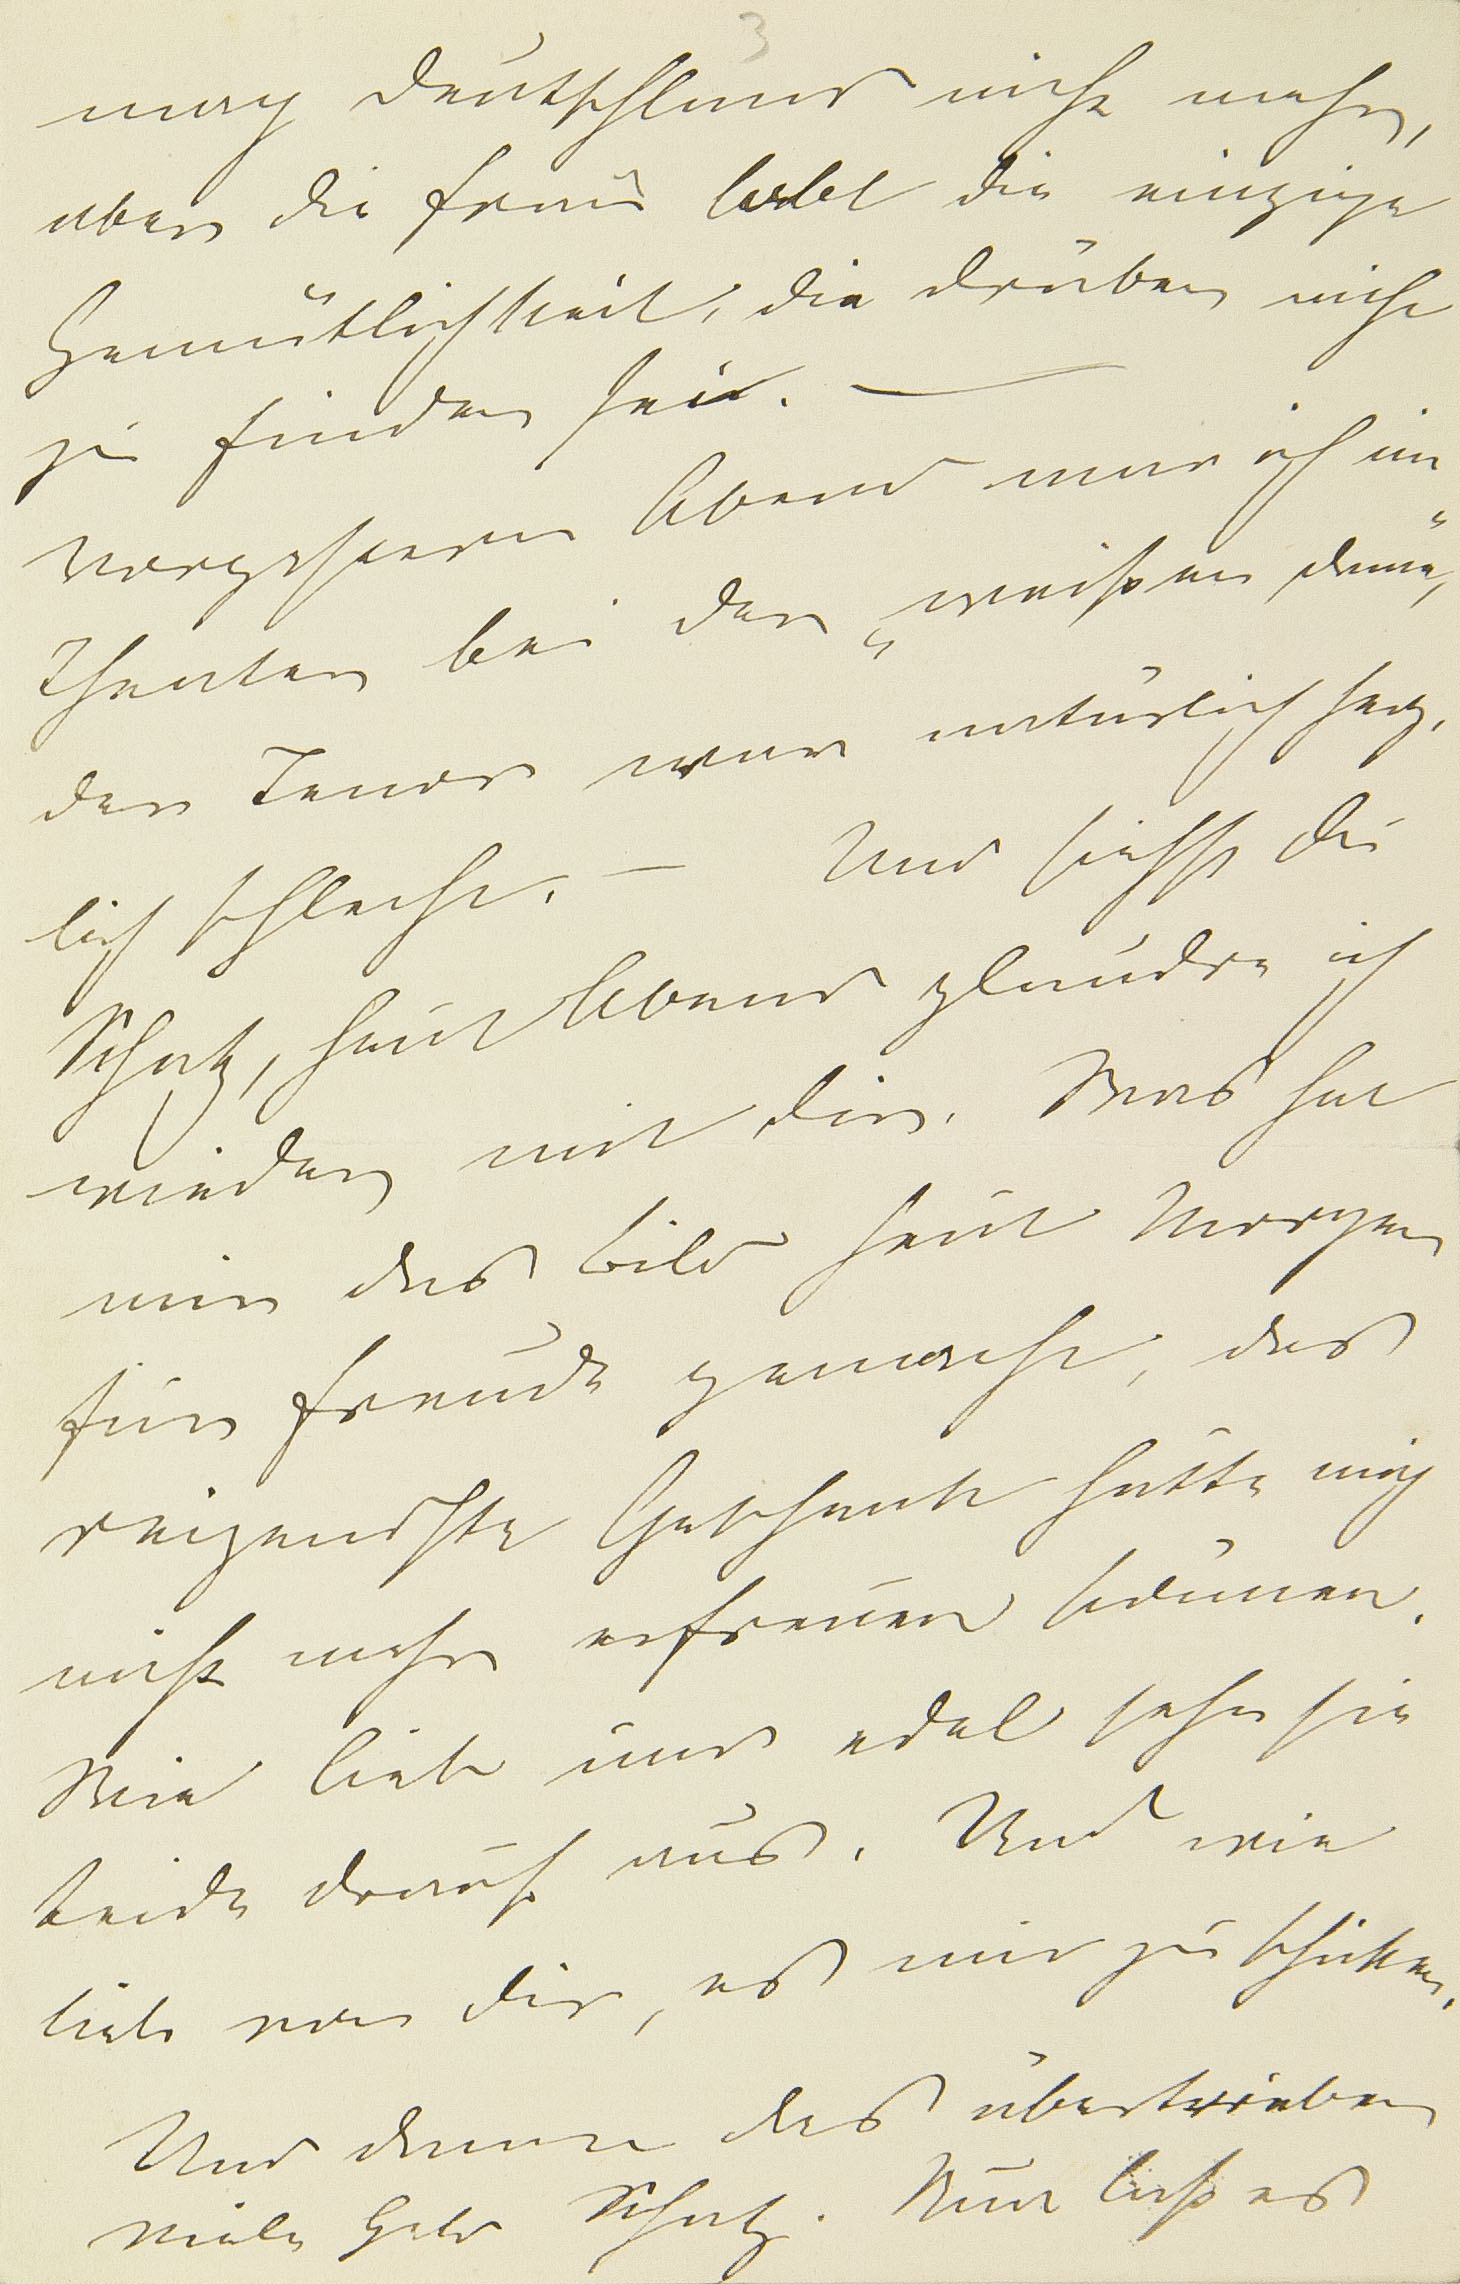 3
mag Deutschland nicht mehr,
aber die Frau lobt die einzige
Gemütlichkeit, die drüben nicht
zu finden sei. —
Vorgestern Abend war ich im
Theater bei der „weißen Dame“,
der Tenor war natürlich herz-
lich schlecht. — Und siehst Du
Schatz, heut Abend plaudre ich
wieder mit Dir. Was hat
mir das Bild heut Morgen
für Freude gemacht, das
reizendste Geschenk hätte mich
nicht mehr erfreuen können.
Wie lieb und edel seht sie
beide drauf aus. Und wie
lieb von Dir, es mir zu schicken.
Und dann das übertrieben
viele Geld Schatz. Nun ließ es